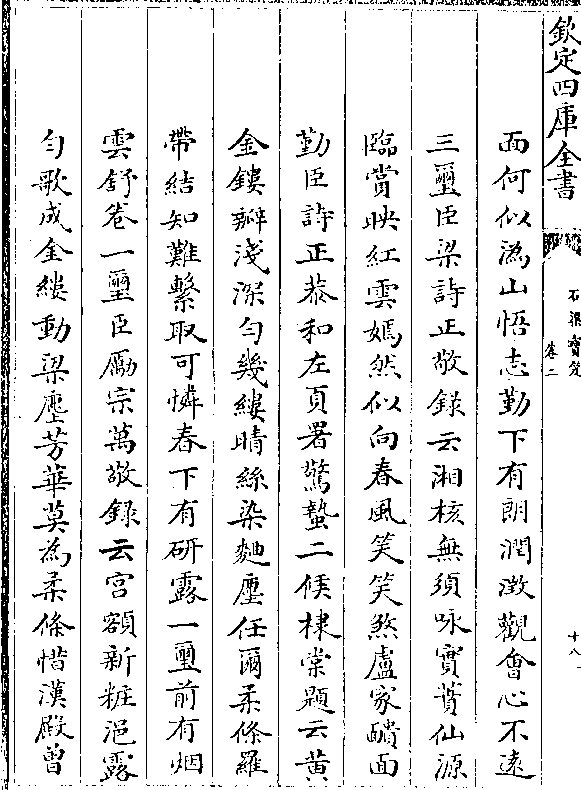 欽定四庫全書
石渠寶笈
卷二
十八
面何似溈山悟志勤下有朗潤澂觀會心不遠
三璽臣梁詩正敬錄云湘核無須咏實蕡仙源
臨賞映紅雲嫣然似向春風笑笑煞盧家靧面
勤臣詩正恭和左頁署驚蟄二候棣棠題云黄
金鏤瓣淺深勻幾縷晴絲染麴塵任爾柔條羅
帶結知難繫取可憐春下有研露一璽前有烟
雲舒卷一璽臣勵宗萬敬錄云宫額新粧浥露
勻歌成金縷動梁塵芳華莫為柔條惜漢殿曾